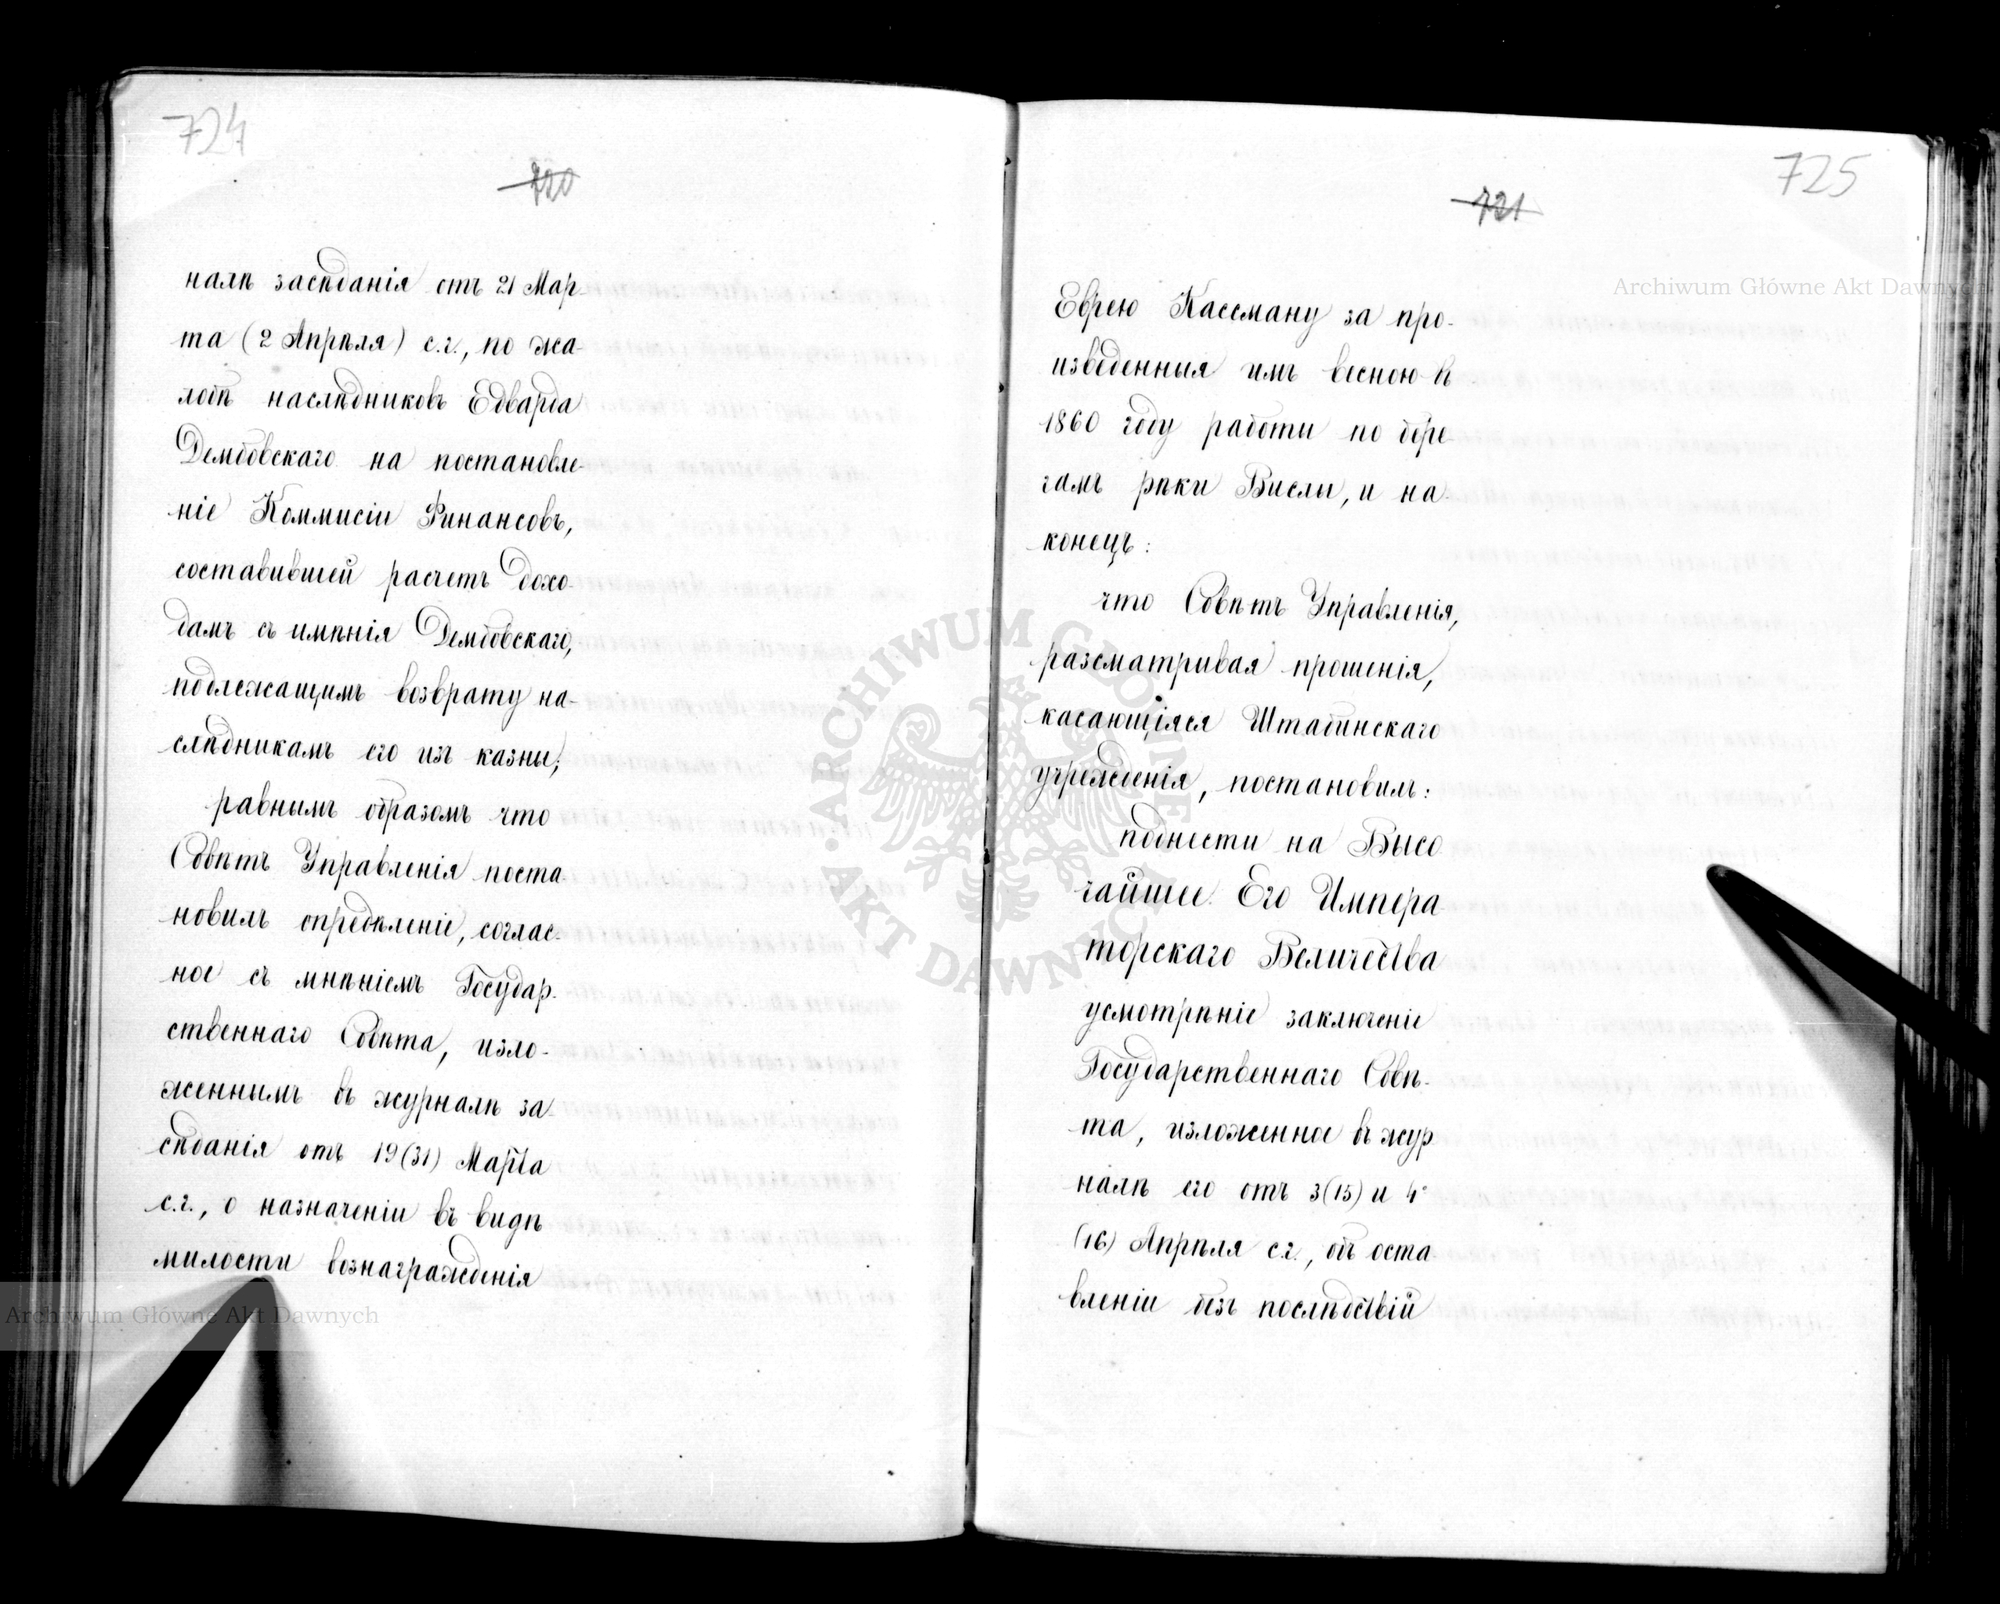 724
720
налѣ засѣданія отъ 21 Мар-
та (2 Апрѣля) с.г., по жа-
лобѣ наслѣдниковъ Едварда
Дембовскаго на постановле-
ніе Коммисіи Финансовъ,
составившей расчетъ дохо-
дамъ съ имѣнія Дембовскаго,
подлежащимъ возврату на-
слѣдникамъ его изъ казны;
равнымъ образомъ что
Совѣтъ Управленія поста
новилъ опредѣленіе, соглас-
ное съ мнѣніемъ Государ-
ственнаго Совѣта, изло-
женнымъ въ журналѣ за-
сѣданія отъ 19 (31) Марта
с.г., о назначеніи въ видѣ
милости вознагражденія
725
721
Еврею Кассману за про-
изведенныя имъ весною въ
1860 году работы по бере
гамъ рѣки Вислы, и на-
конецъ:
что Совѣтъ Управленія,
разсматривая прошенія,
касающіяся Штабинскаго
учрежденія, постановилъ:
поднести на Высо
чайшее Его Импера
торскаго Величества
усмотрѣніе заключеніе
Государственнаго Совѣ-
та, изложенное въ жур
налѣ его отъ 3 (15) и 4
(16) Апрѣля с.г., объ оста
вленіи безъ послѣдствій
Archiwum Główne Akt Dawnych
Archiwum Główne Akt Dawnych
ARCHIWUM GŁÓWNE AKT DAWNYCH